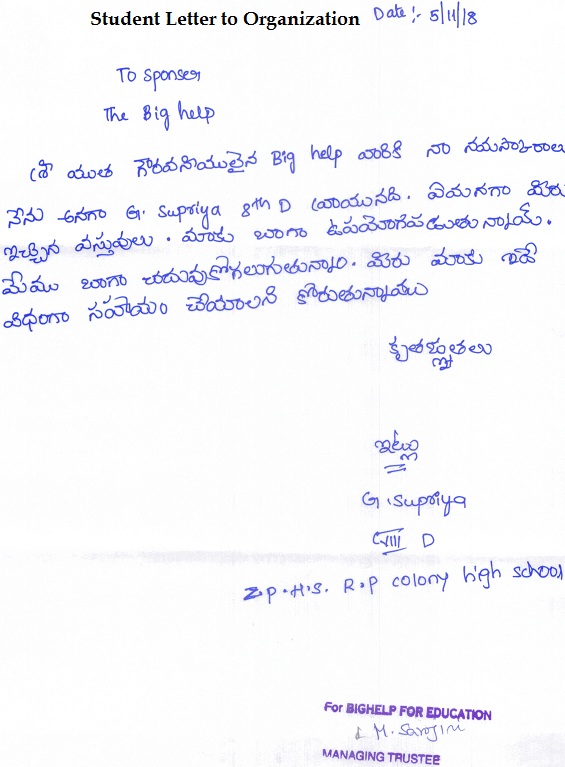 Student Letter to Organization Date :- 5/11/18
To sponser
The Big help
శ్రీ యుత గౌరవనీయులైన Big help వారికి నా నమస్కారాలు
నేను అనగా G. Supriya 8th D వ్రాయునది. ఏమనగా మీరు
ఇచ్చిన వస్తువులు. మాకు బాగా ఉపయోగపడుతున్నాయ్.
మేము బాగా చదువుకోగలుగుతున్నాం. మీరు మాకు ఇదే
విధంగా సహాయం చేయాలని కోరుతున్నాము
కృతజ్ఞతలు
ఇట్లు
G. Supriya
VIII D
Z.P.H.S. R.P colony high school
For BIGHELP FOR EDUCATION
M. Sarojini
MANAGING TRUSTEE